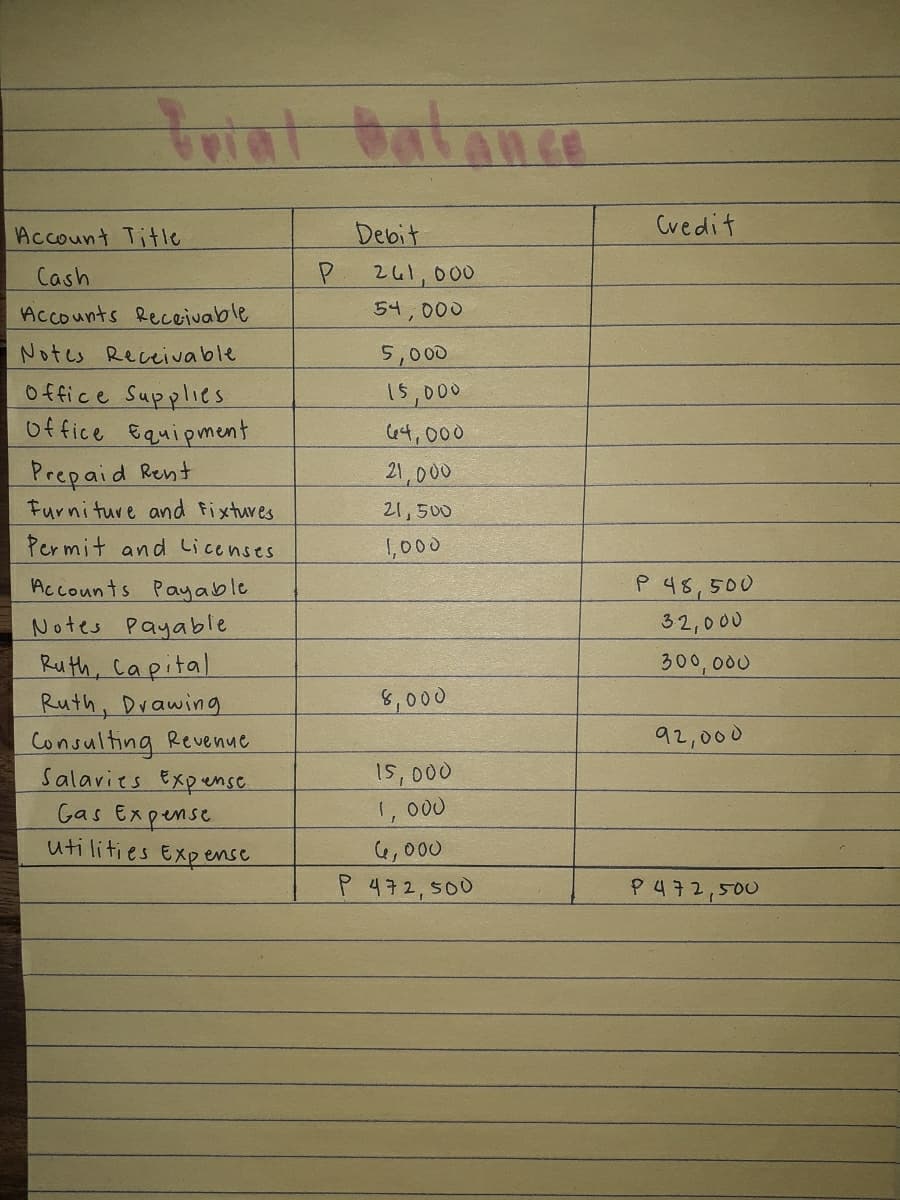 Trial Balance
Account Title Debit Credit
Cash P 261,000
Accounts Receivable 54,000
Notes Receivable 5,000
Office Supplies 15,000
Office Equipment 64,000
Prepaid Rent 21,000
Furniture and Fixtures 21,500
Permit and Licenses 1,000
Accounts Payable P 48,500
Notes Payable 32,000
Ruth, Capital 300,000
Ruth, Drawing 8,000
Consulting Revenue 92,000
Salaries Expense 15,000
Gas Expense 1,000
Utilities Expense 6,000
P 472,500 P 472,500